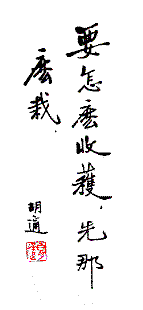 要怎麽收穫,先那
麽栽.
胡適